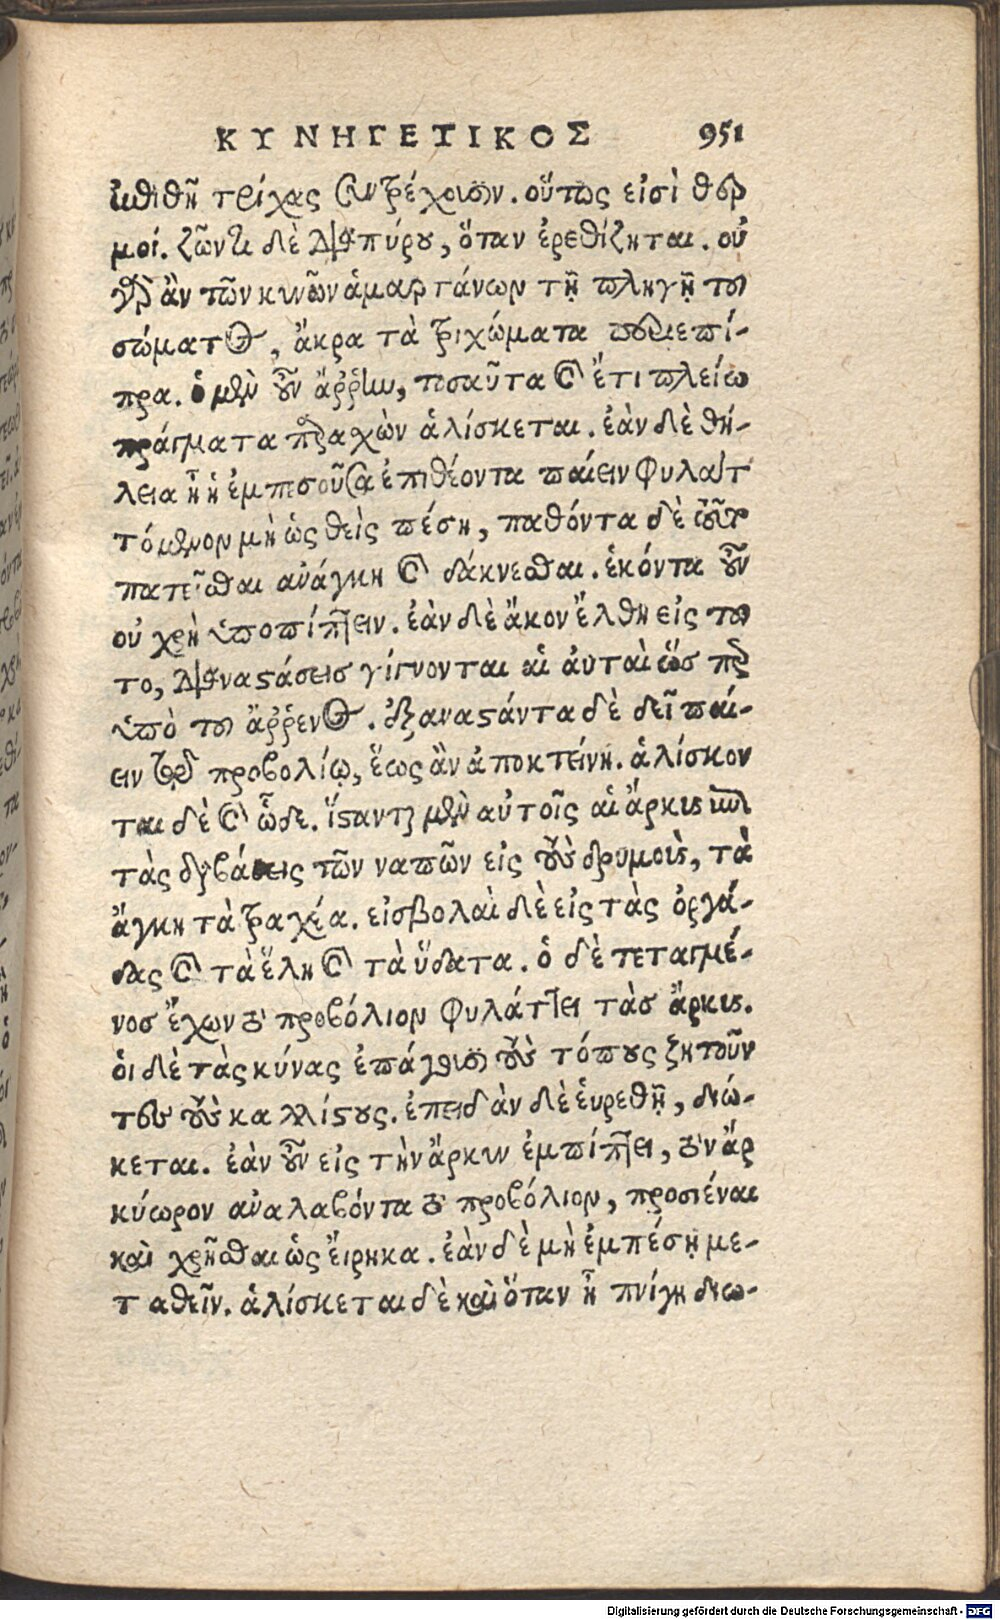 ΚΥΝΗΓΕΤΙΚΟΣ 951
ἐπιθῇ τρίχας συντρέχουσιν. οὕτως εἰσὶ θερ
μοί. ζῶντι δὲ διάπυροι, ὅταν ἐρεθίζηται. οὐ
γὰρ ἂν τῶν κυνῶν ἁμαρτάνων τῇ πληγῇ τοῦ
σώματος, ἄκρα τὰ τριχώματα περιεπί-
πρα. ὁ μὲν οὖν ἄῤῥην, τοσαῦτα καὶ ἔτι πλείω
πράγματα παραχὼν ἁλίσκεται. ἐὰν δὲ θή-
λεια ᾖ ἡ ἐμπεσοῦσα ἐπιθέοντα παίειν φυλατ
τόμενον μὴ ὡσθεὶς πέση, παθόντα δὲ τοῦτο
πατεῖσθαι ἀνάγκη καὶ δάκνεσθαι. ἑκόντα οὖν
οὐ χρὴ ὑποπίπτειν. ἐὰν δὲ ἄκον ἔλθη εἰς τοῦ
το, διαναστάσεις γίγνονται αἱ αὐταὶ ὥσπερ
ὑπὸ τοῦ ἄῤῥενος. ἐξαναστάντα δὲ δεῖ παί-
ειν τῷ προβολίῳ, ἕως ἂν ἀποκτείνη. ἁλίσκον
ται δὲ καὶ ὧδε. ἵστανται μὲν αὐτοῖς αἱ ἄρκυς ἐπὶ
τὰς διαβάσεις τῶν ναπῶν εἰς τοὺς δρυμοὺς, τὰ
ἄγκη τὰ τραχέα. εἰσβολαὶ δὲ εἰς τὰς ὀργά-
δας καὶ τὰ ἕλη καὶ τὰ ὕδατα. ὁ δὲ τεταγμέ-
νος ἔχων τὸ προβόλιον φυλάττει τὰς ἄρκυς.
οἱ δὲ τὰς κύνας ἐπάγουσι τοὺς τόπους ζητοῦν
τες τοὺς καλλίστους. ἐπειδὰν δὲ ἑυρεθῇ, διώ-
κεται. ἐὰν οὖν εἰς τὴν ἄρκυν ἐμπίπτει, τὸν ἀρ
κύωρον ἀναλαβόντα τὸ προβόλιον, προσιέναι
καὶ χρῆσθαι ὡς ἔιρηκα. ἐὰν δὲ μὴ ἐμπέσῃ με-
ταθεῖν. ἁλίσκεται δὲ καὶ ὅταν ᾖ πνίγη διω-
Digitalisierung gefördert durch die Deutsche Forschungsgemeinschaft - DFG